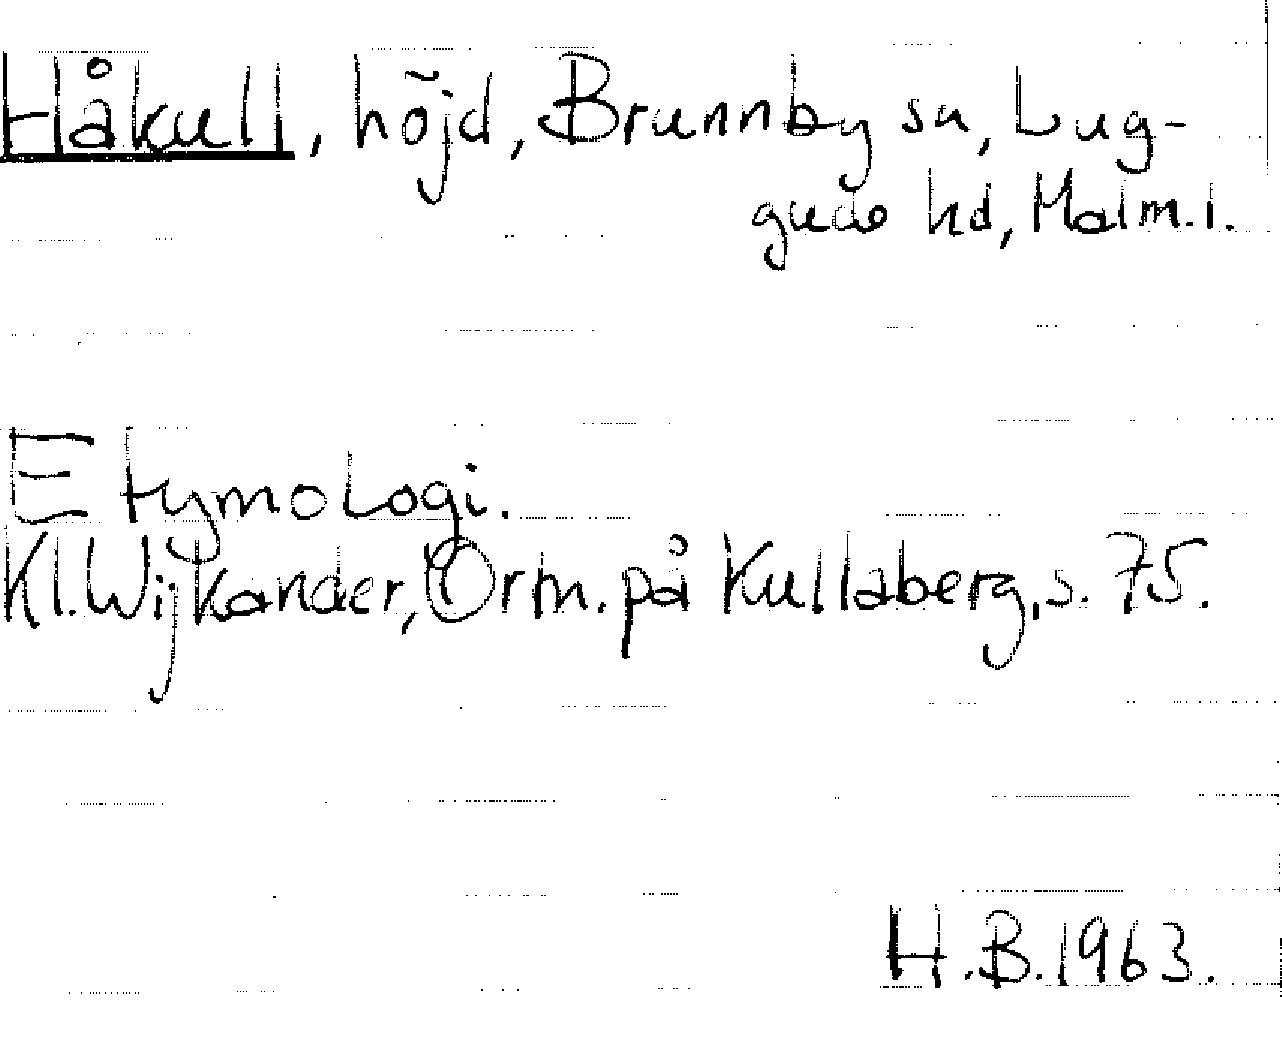 Håkull, höjd, Brunnby sn, Lug-
gude hd, Malm.l.
Etymologi.
Kl. Wijkander, Orm. på Kullaberg, s. 75.
H.B. 1963.